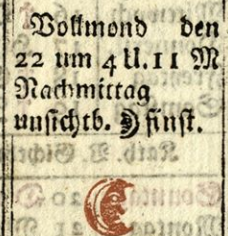 Vollmond den
22 um 4 U. 11 M
Nachmittag
unsichtb. ☽ finst.